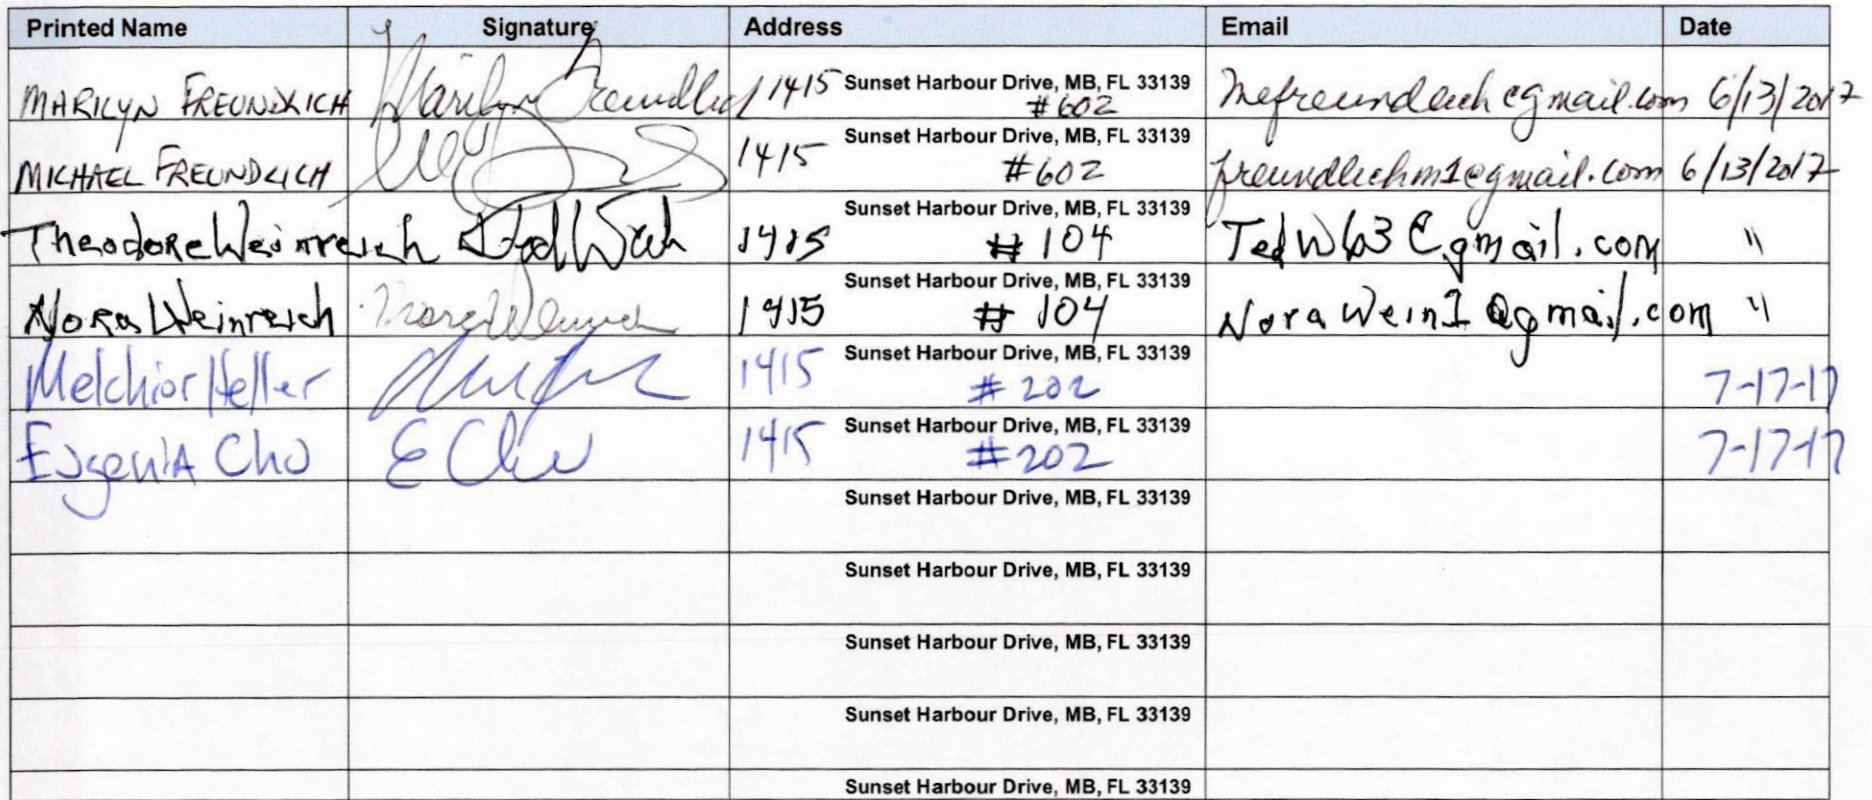 Printed Name Signature Address Email Date
MARILYN FREUNDLICH Marilyn Freundlich 1415 Sunset Harbour Drive, MB, FL 33139 #602 mefreundlich@gmail.com 6/13/2017
MICHAEL FREUNDLICH 1415 Sunset Harbour Drive, MB, FL 33139 #602 freundlichm1@gmail.com 6/13/2017
Theodore Weinreich 1415 Sunset Harbour Drive, MB, FL 33139 #104 TedW63@gmail.com "
Nora Weinreich 1415 Sunset Harbour Drive, MB, FL 33139 #104 NoraWein1@gmail.com "
Melchior Heller 1415 Sunset Harbour Drive, MB, FL 33139 #202 7-17-17
EugeniA Cho 1415 Sunset Harbour Drive, MB, FL 33139 #202 7-17-17
Sunset Harbour Drive, MB, FL 33139
Sunset Harbour Drive, MB, FL 33139
Sunset Harbour Drive, MB, FL 33139
Sunset Harbour Drive, MB, FL 33139
Sunset Harbour Drive, MB, FL 33139